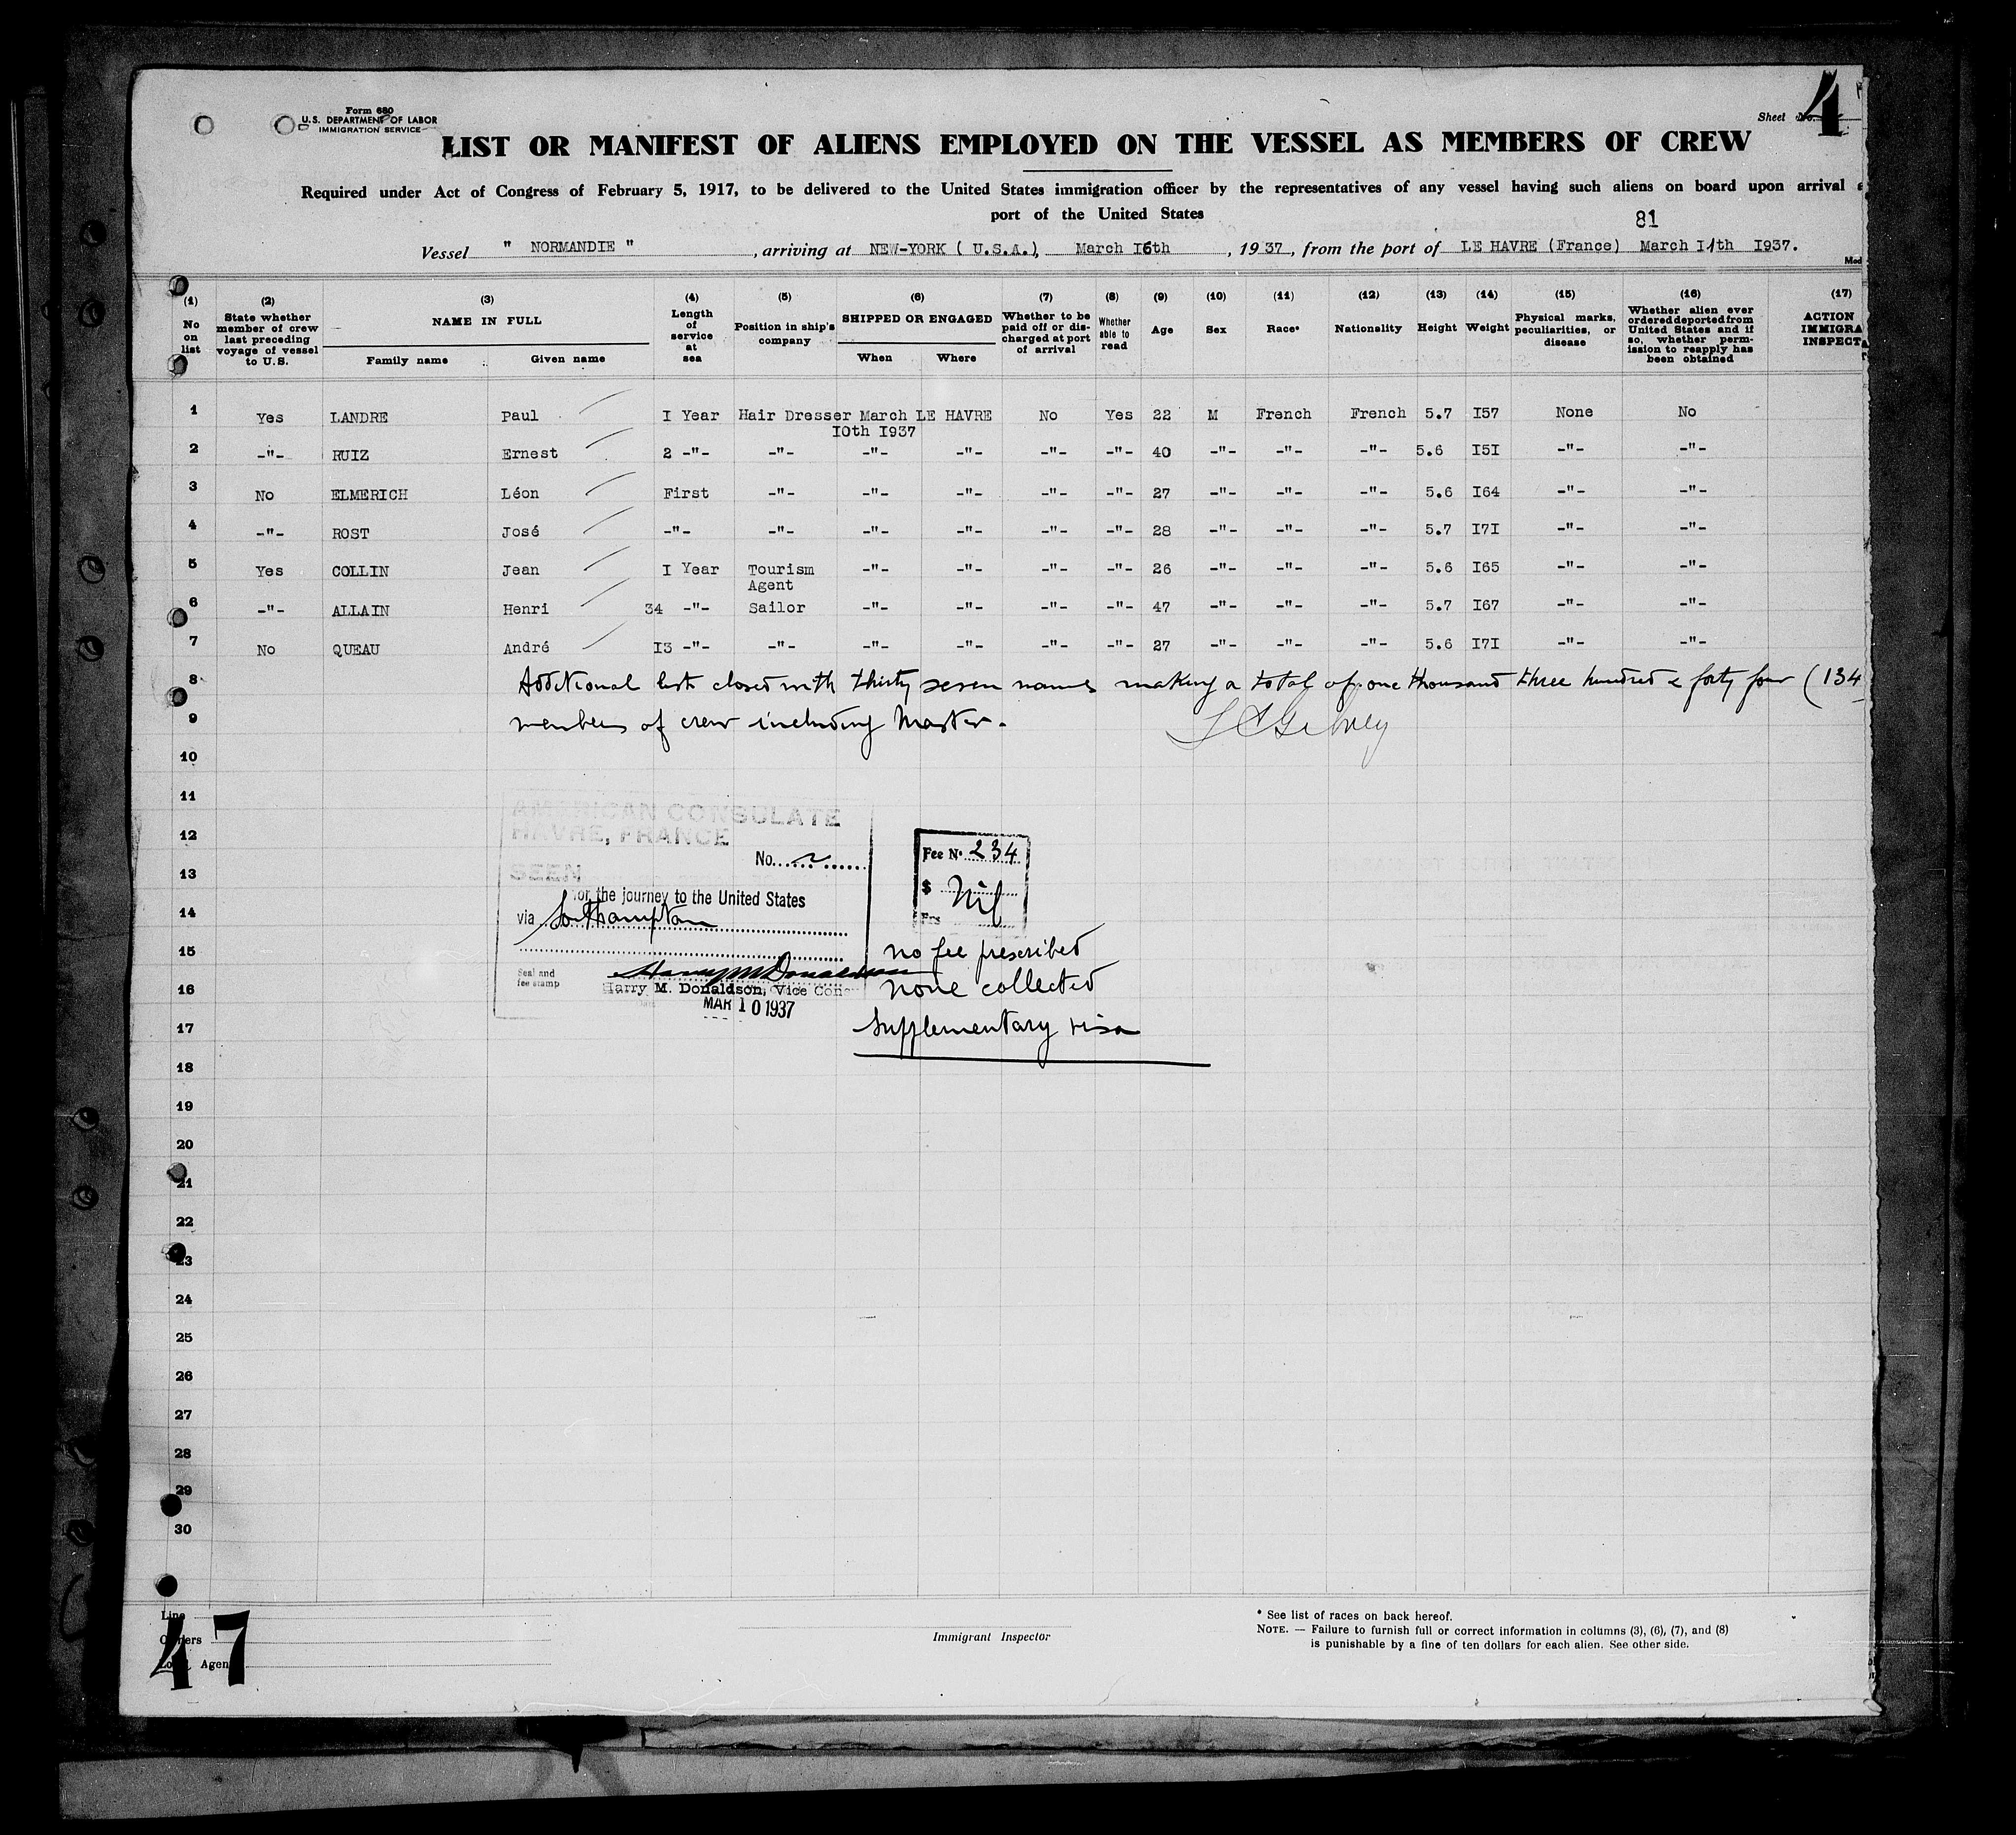 Form 680
U.S. DEPARTMENT OF LABOR
IMMIGRATION SERVICE
Sheet No. 4
LIST OR MANIFEST OF ALIENS EMPLOYED ON THE VESSEL AS MEMBERS OF CREW
Required under Act of Congress of February 5, 1917, to be delivered to the United States immigration officer by the representatives of any vessel having such aliens on board upon arrival a
port of the United States
81
Vessel " NORMANDIE " , arriving at NEW-YORK ( U.S.A.), March I6th , 1937, from the port of LE HAVRE (France) March I1th I937.
(1) (2) (3) (4) (5) (6) (7) (8) (9) (10) (11) (12) (13) (14) (15) (16) (17)
No on list
State whether member of crew last preceding voyage of vessel to U.S.
NAME IN FULL
Family name Given name
Length of service at sea
Position in ship's company
SHIPPED OR ENGAGED
When Where
Whether to be paid off or discharged at port of arrival
Whether able to read
Age
Sex
Race*
Nationality
Height
Weight
Physical marks, peculiarities, or disease
Whether alien ever ordered deported from United States and if so, whether permission to reapply has been obtained
ACTION
IMMIGRA
INSPECT
1 Yes LANDRE Paul I Year Hair Dresser March LE HAVRE No Yes 22 M French French 5.7 I57 None No
I0th I937
2 -"- RUIZ Ernest 2 -"- -"- -"- -"- -"- -"- 40 -"- -"- -"- 5.6 I5I -"- -"-
3 No ELMERICH Léon First -"- -"- -"- -"- -"- 27 -"- -"- -"- 5.6 I64 -"- -"-
4 -"- ROST José -"- -"- -"- -"- -"- -"- 28 -"- -"- -"- 5.7 I7I -"- -"-
5 Yes COLLIN Jean I Year Tourism -"- -"- -"- -"- 26 -"- -"- -"- 5.6 I65 -"- -"-
Agent
6 -"- ALLAIN Henri 34 -"- Sailor -"- -"- -"- -"- 47 -"- -"- -"- 5.7 I67 -"- -"-
7 No QUEAU André I3 -"- -"- -"- -"- -"- -"- 27 -"- -"- -"- 5.6 I7I -"- -"-
8 Additional list closed with thirty seven names making a total of one thousand three hundred & forty four (134
9 members of crew including Master.
10
11
AMERICAN CONSULATE
12
HAVRE, FRANCE
Fee No. 234
No.
13
SEEN
$ Nil
for the journey to the United States
14
Frs
via Southampton
15
no fee prescribed
Seal and
fee stamp
16
none collected
Harry M. Donaldson, Vice Cons
MAR 10 1937
17
Supplementary visa
18
19
20
21
22
23
24
25
26
27
28
29
30
Line
Owners
Local Agent
47
Immigrant Inspector
* See list of races on back hereof.
NOTE. — Failure to furnish full or correct information in columns (3), (6), (7), and (8)
is punishable by a fine of ten dollars for each alien. See other side.